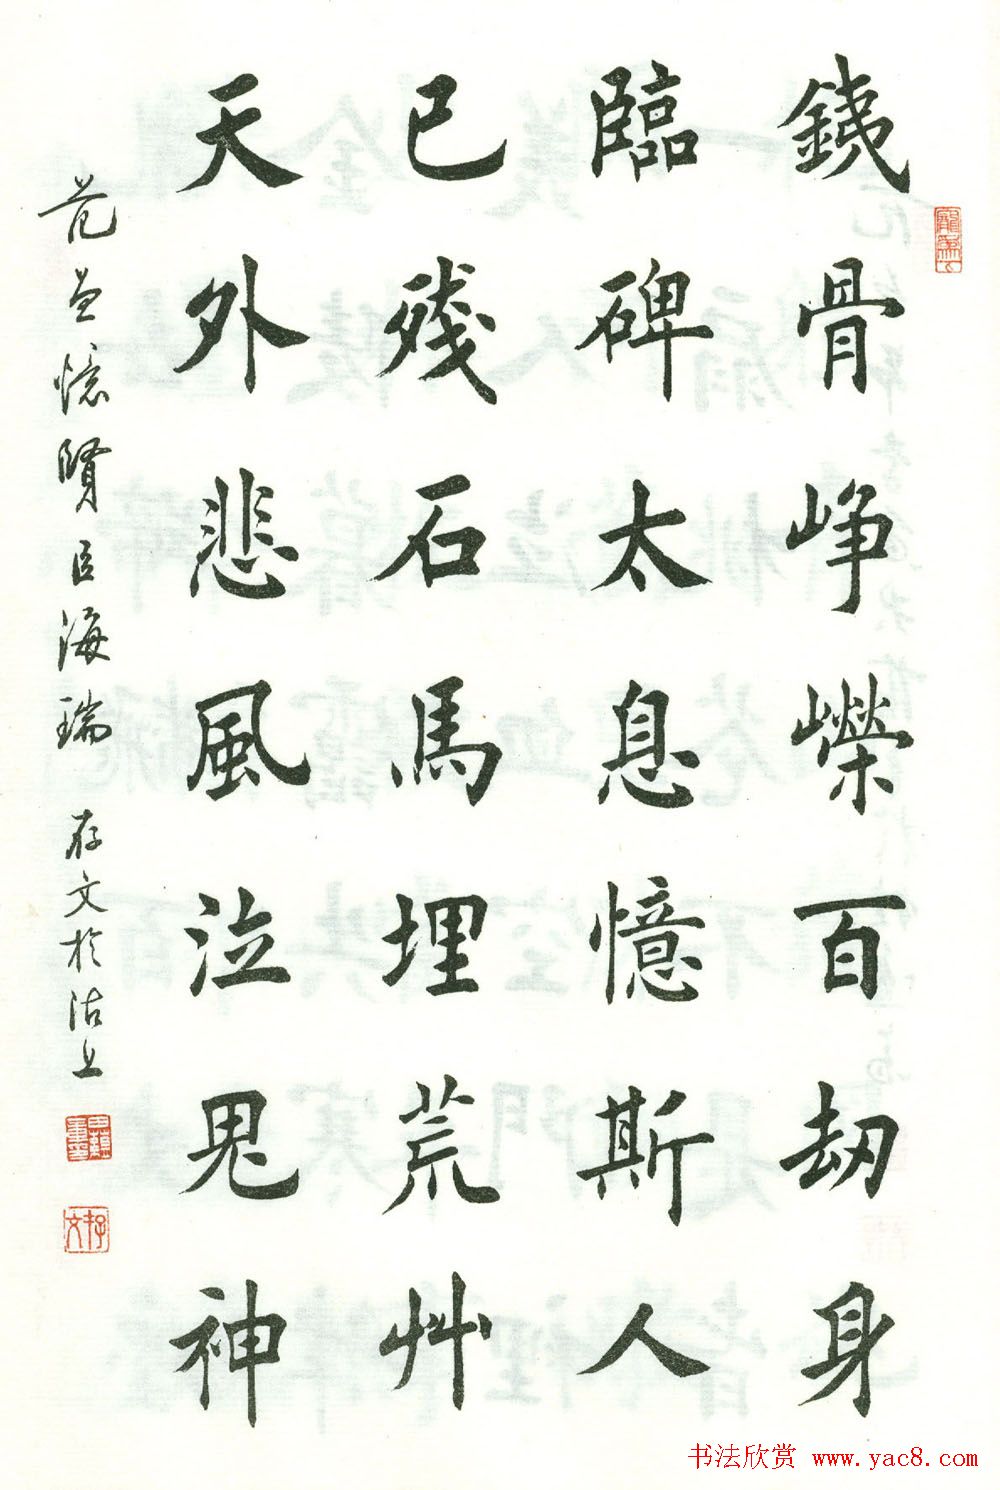 銕骨峥嶸百劫身
臨碑太息憶斯人
已残石馬埋荒艸
天外悲風泣鬼神
范曽憶賢臣海瑞 存文於沽上
存文
书法欣赏 www.yac8.com